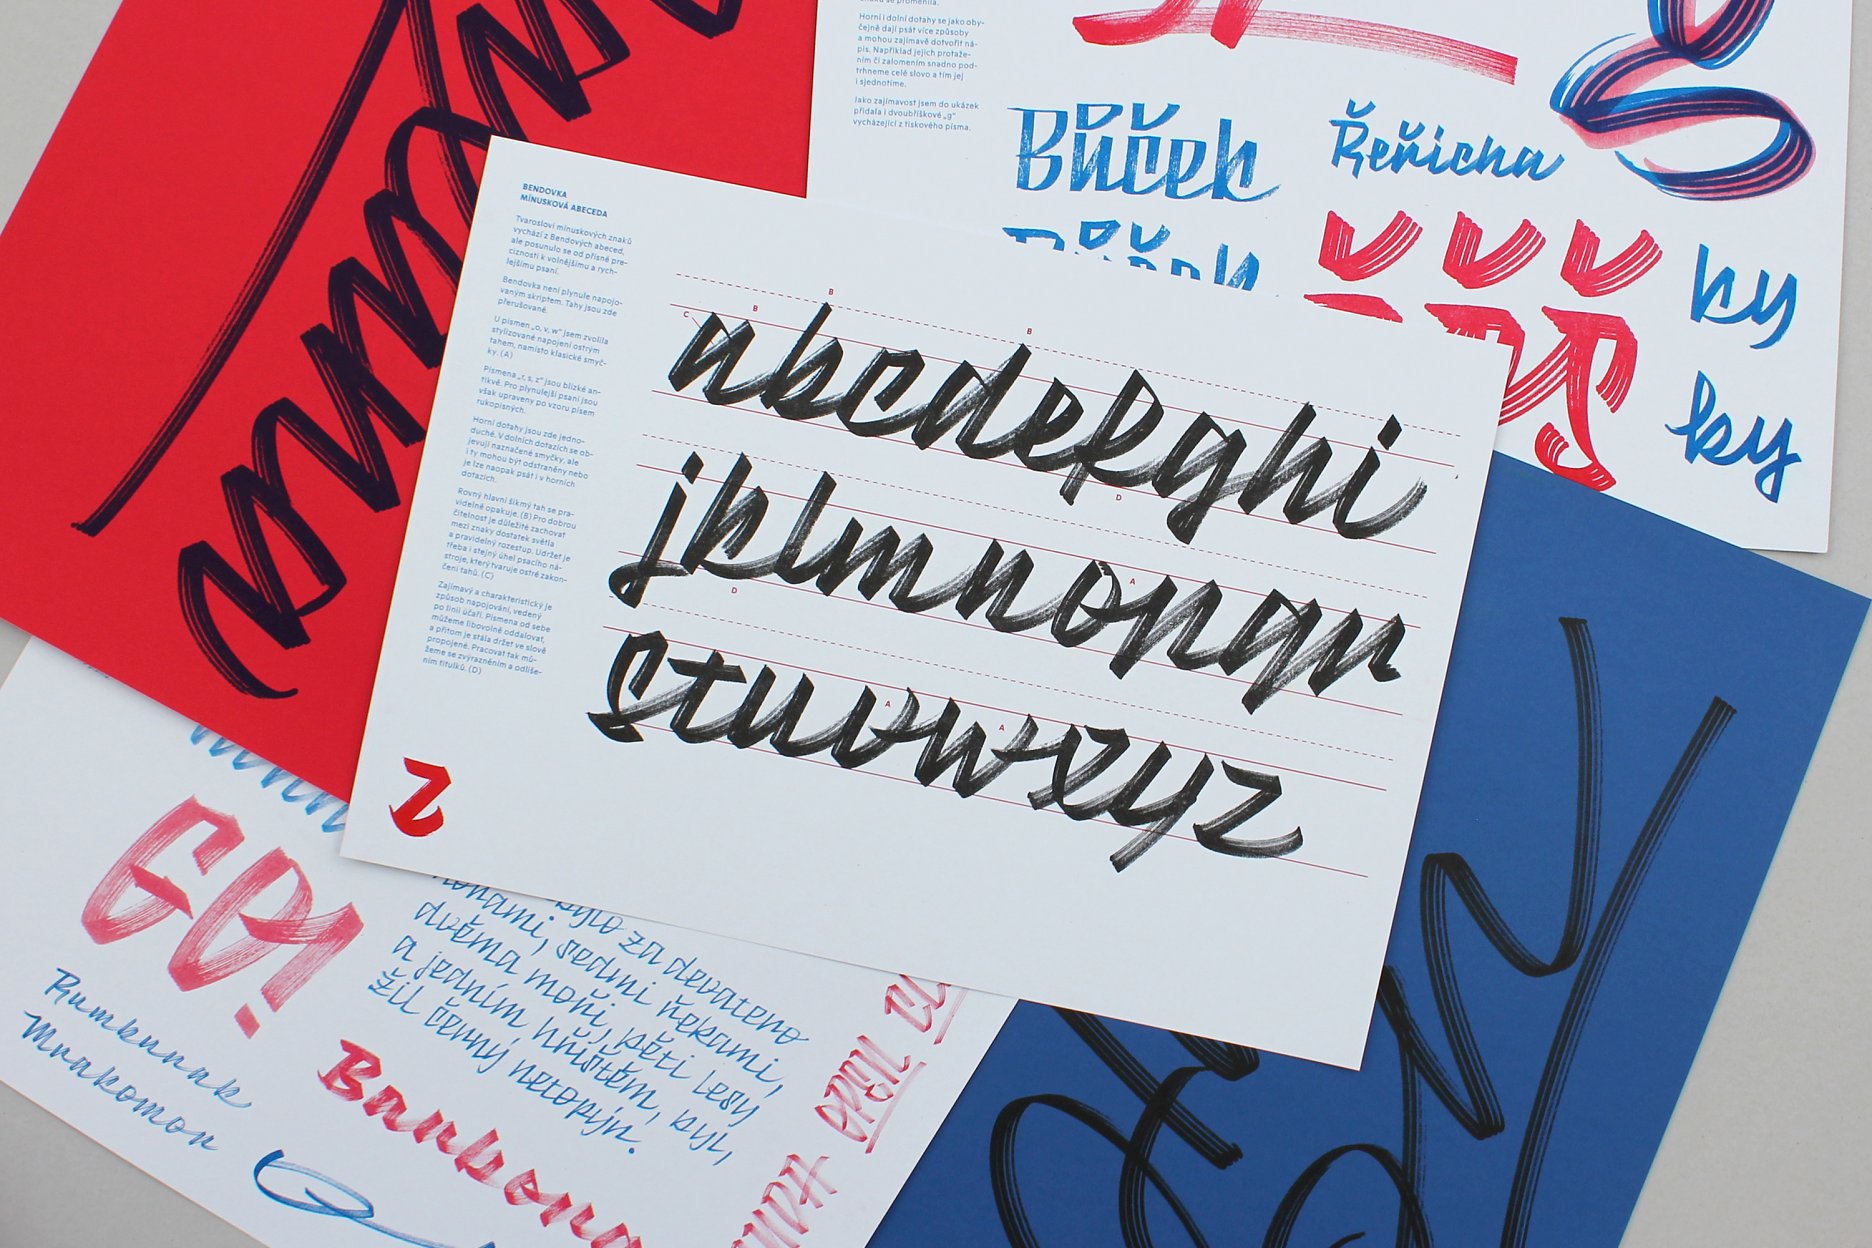 Horní i dolní dotahy se jako oby-
čejně dají psát více způsoby
a mohou zajímavě dotvořit ná-
pis. Například jejich protaže-
ním či zalomením snadno pod-
trhneme celé slovo a tím jej
i sjednotíme.
Jako zajímavost jsem do ukázek
přidala i dvoubříškové „g"
vycházející z tiskového písma.
Bůček
Řeřicha
ky
ky
BENDOVKA
MINUSKOVÁ ABECEDA
Tvarosloví minuskových znaků
vychází z Bendových abeced,
ale posunulo se od přísné pre-
ciznosti k volnějšímu a rych-
lejšímu psaní.
Bendovka není plynule napojo-
vaným skriptem. Tahy jsou zde
přerušované.
U písmen „o, v, w" jsem zvolila
stylizované napojení ostrým
tahem, namísto klasické smyč-
ky. (A)
Písmena „r, s, z" jsou blízké an-
tikvě. Pro plynulejší psaní jsou
však upraveny po vzoru písem
rukopisných.
Horní dotahy jsou zde jedno-
duché. V dolních dotazích se ob-
jevují naznačené smyčky, ale
i ty mohou být odstraněny nebo
je lze naopak psát i v horních
dotazích.
Rovný hlavní šikmý tah se pra-
videlně opakuje. (B) Pro dobrou
čitelnost je důležité zachovat
mezi znaky dostatek světla
a pravidelný rozestup. Udržet je
třeba i stejný úhel psacího ná-
stroje, který tvaruje ostré zakon-
čení tahů. (C)
Zajímavý a charakteristický je
způsob napojování, vedený
po linii účaří. Písmena od sebe
můžeme libovolně oddalovat,
a přitom je stále držet ve slově
propojené. Pracovat tak mů-
žeme se zvýrazněním a odliše-
ním titulků. (D)
C B B B
abcdefghi
D
jklmnopqr
D A
stuvwxyz
A A
GO!
Rumburak
Mrakomor
bylo za devatero
horami, sedmi řekami,
dvěma moři, pěti lesy
a jedním hřištěm, byl,
žil černý netopýr.